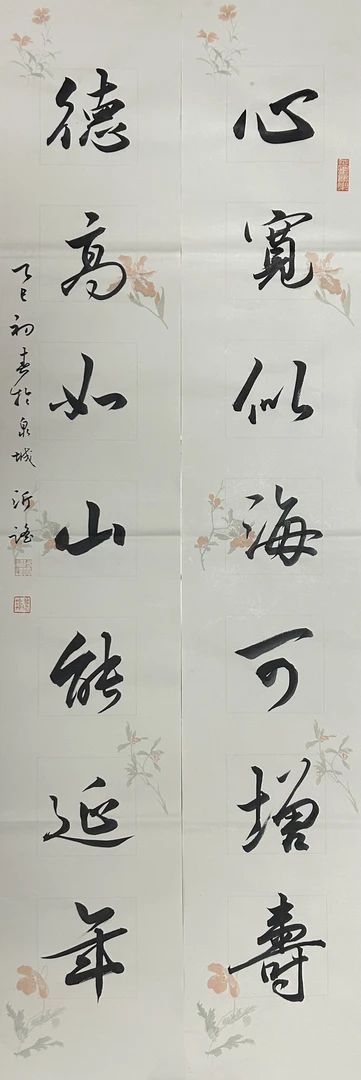 心寬似海可增壽
德高如山能延年
乙巳初春於泉城 沂謐